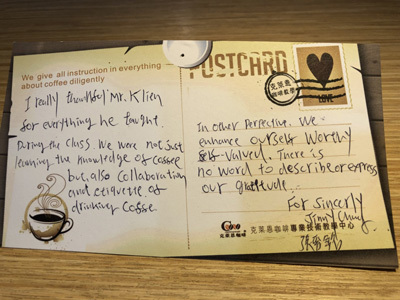 We give all instruction in everything
about coffee diligently
I really thankful Mr. Klien
for everything he taught.
During the class. We were not just
learning the knowledge of coffee
but also collaboration
and etiquette of
drinking coffee.
POSTCARD
LOVE
In other Perfective. We
enhance ourself Worthy
Valued. There is
no word to describe or express
our gratitude...
For sincerly
克萊恩咖啡專業技術教學中心